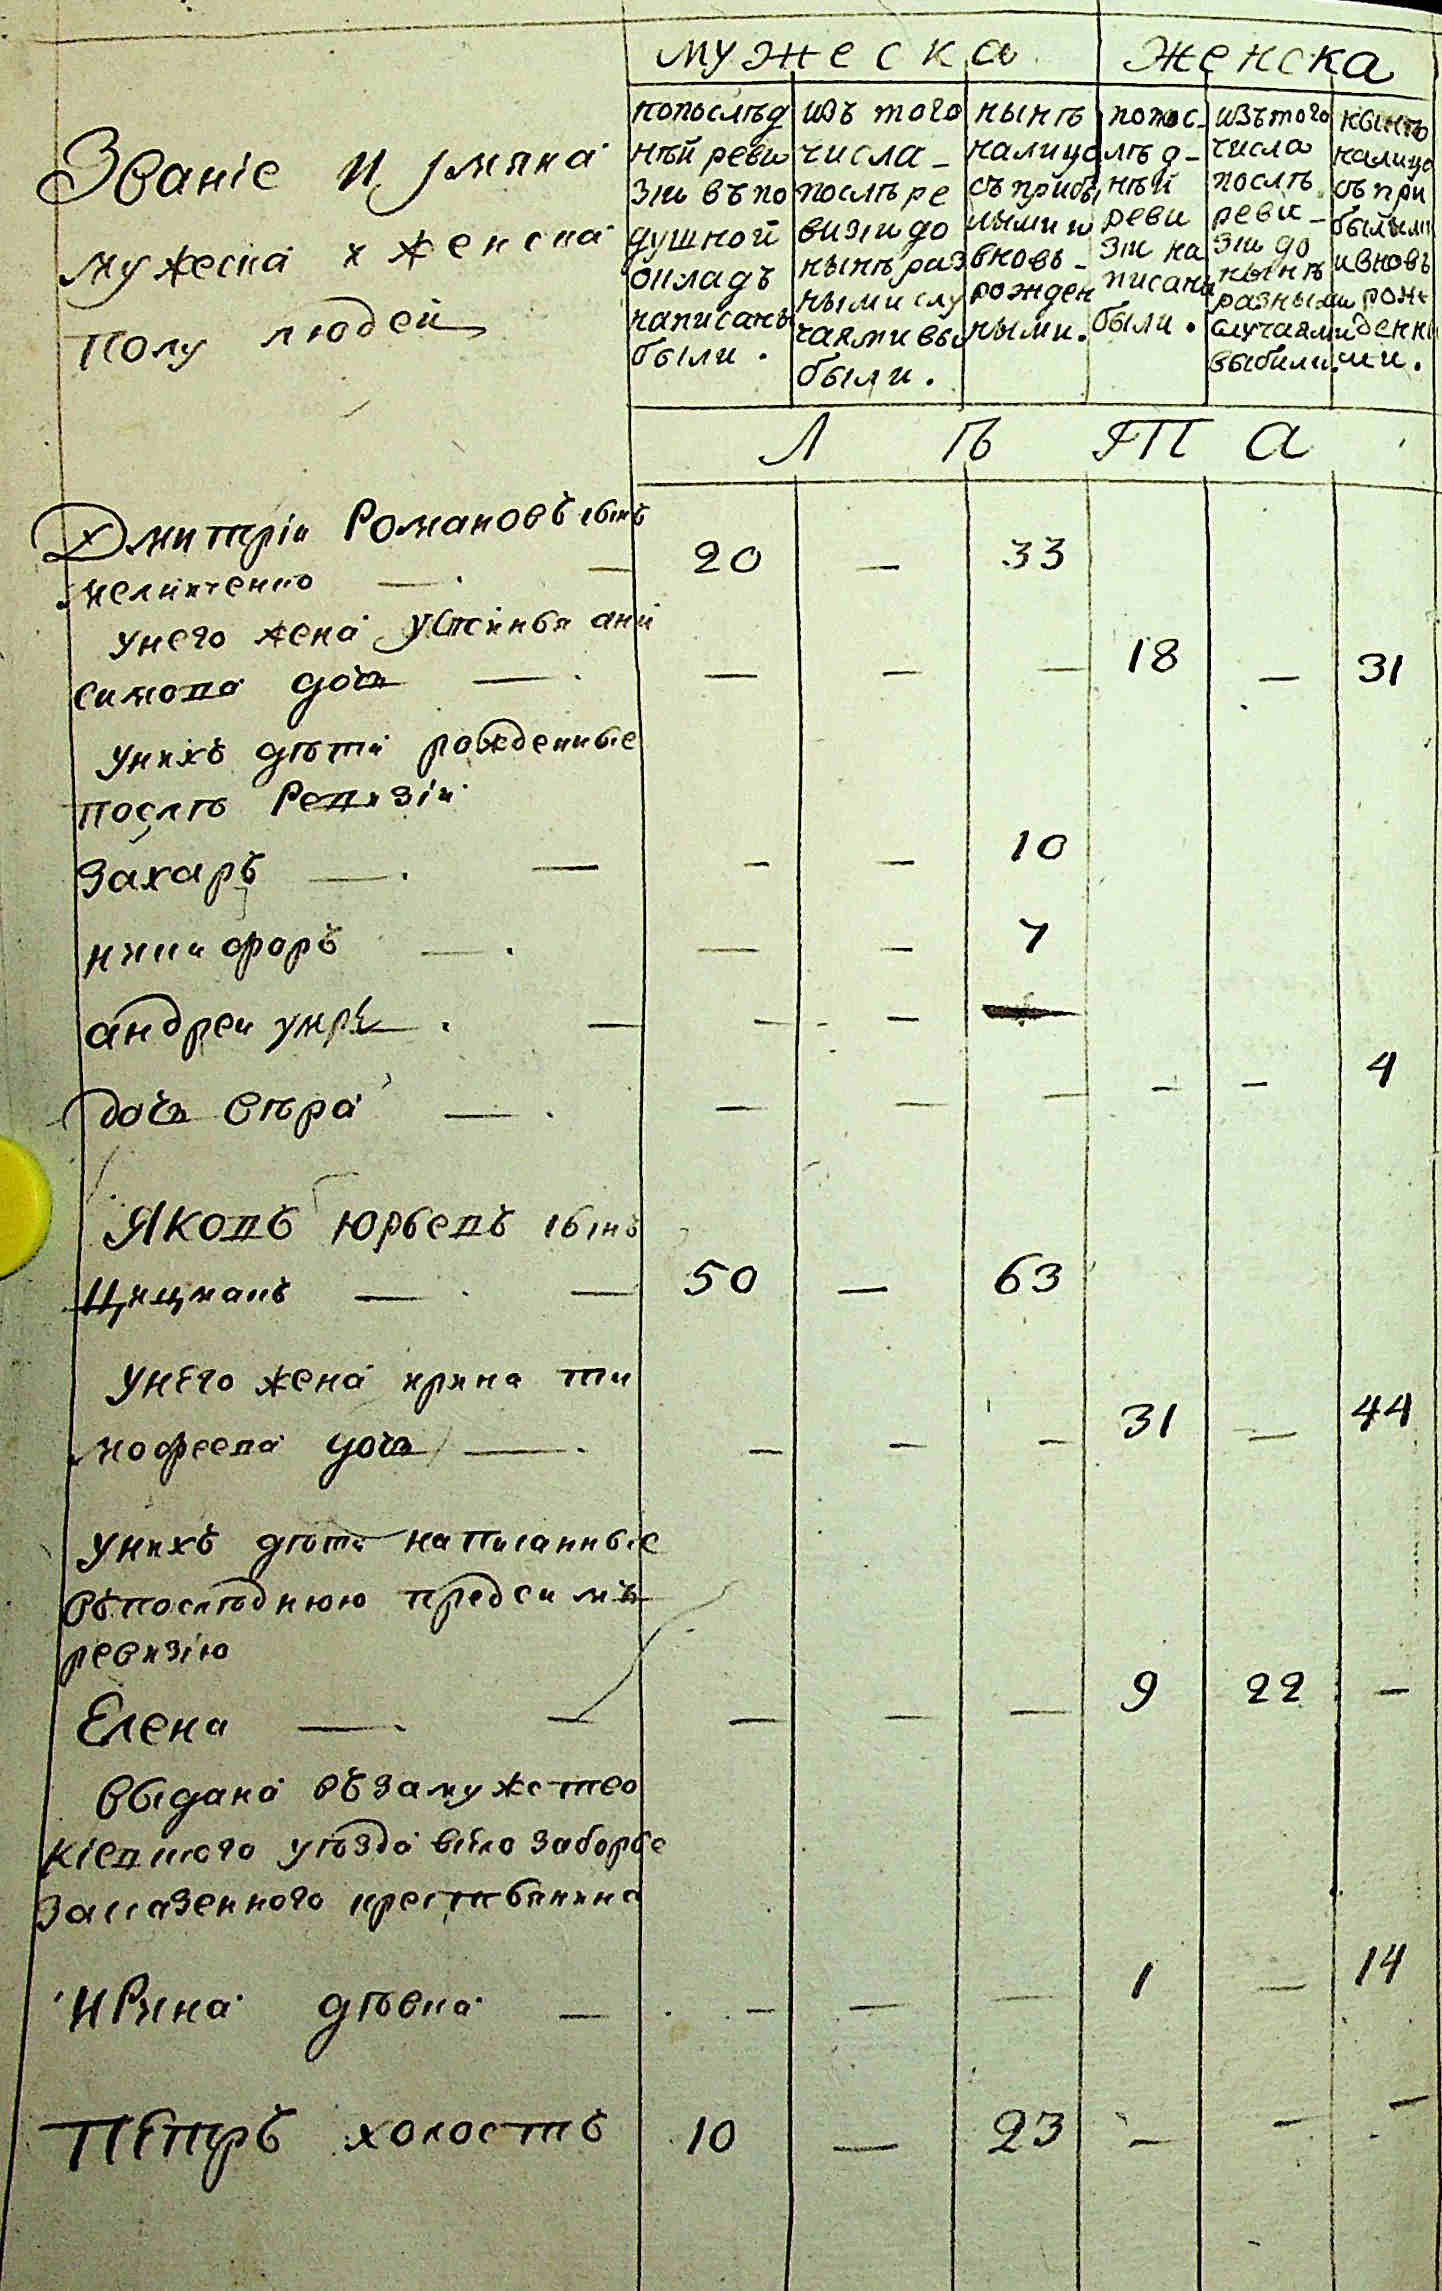 мужеска женска
Званіе и имяна
мужеска и женска
полу людей
попослѣд
нѣй реви
зіи въ по
душной
окладъ
написаны
были .
изъ того
числа -
послѣ ре
визіи до
нынѣ раз
ными слу
чаями вы
были .
нынѣ
налицо
съ прибы
лыми и
вновь -
рожден
ными .
попос-
лѣд-
нѣй
реви
зіи на
писаны
были .
изътого
числа
послѣ
реви-
зіи до
нынѣ
разными
случаями
выбили .
нынѣ
налицо
съ при
былыми
ивновь
рож
денны
ми .
Л Ѣ Т А
Дмитріи Романовъ сынъ
— . — 20 — 33
унего жена устинья ани
симова дочь — . — — — 18 — 31
унихъ дѣти рожденные
послѣ Ревизіи
Захаръ — . — - — 10
никифоръ — . — — 7
андреи умре . — — — —
дочь вѣра — . — — — — — 4
Яковъ Юрьевъ сынъ
— . — 50 — 63
унего жена ирина ти
мофеева дочь — . — — — 31 — 44
унихъ дѣти написанные
въпослѣднюю предсимъ
ревизію
Елена — . — — — — 9 22 —
выдана въ замужство
Кіевского уѣзда
заказенного крестьянина
Ирина дѣвка — . — — — 1 — 14
Петръ холостъ 10 — 23 — — —